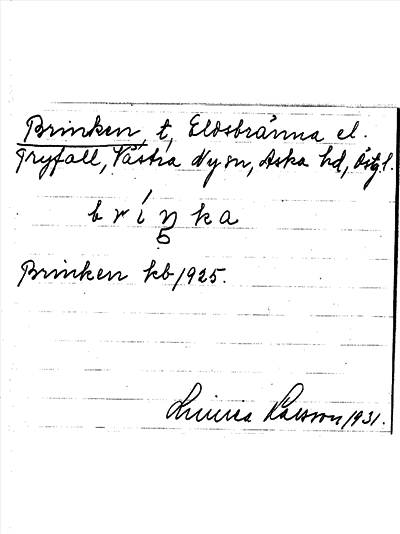 Brinken, t, Eldsbränna el.
Tryfall, Västra Ny sn, Aska hd, Östgl.
b r í ŋ k a
5
Brinken kb 1925.
Linnea Larsson 1931.